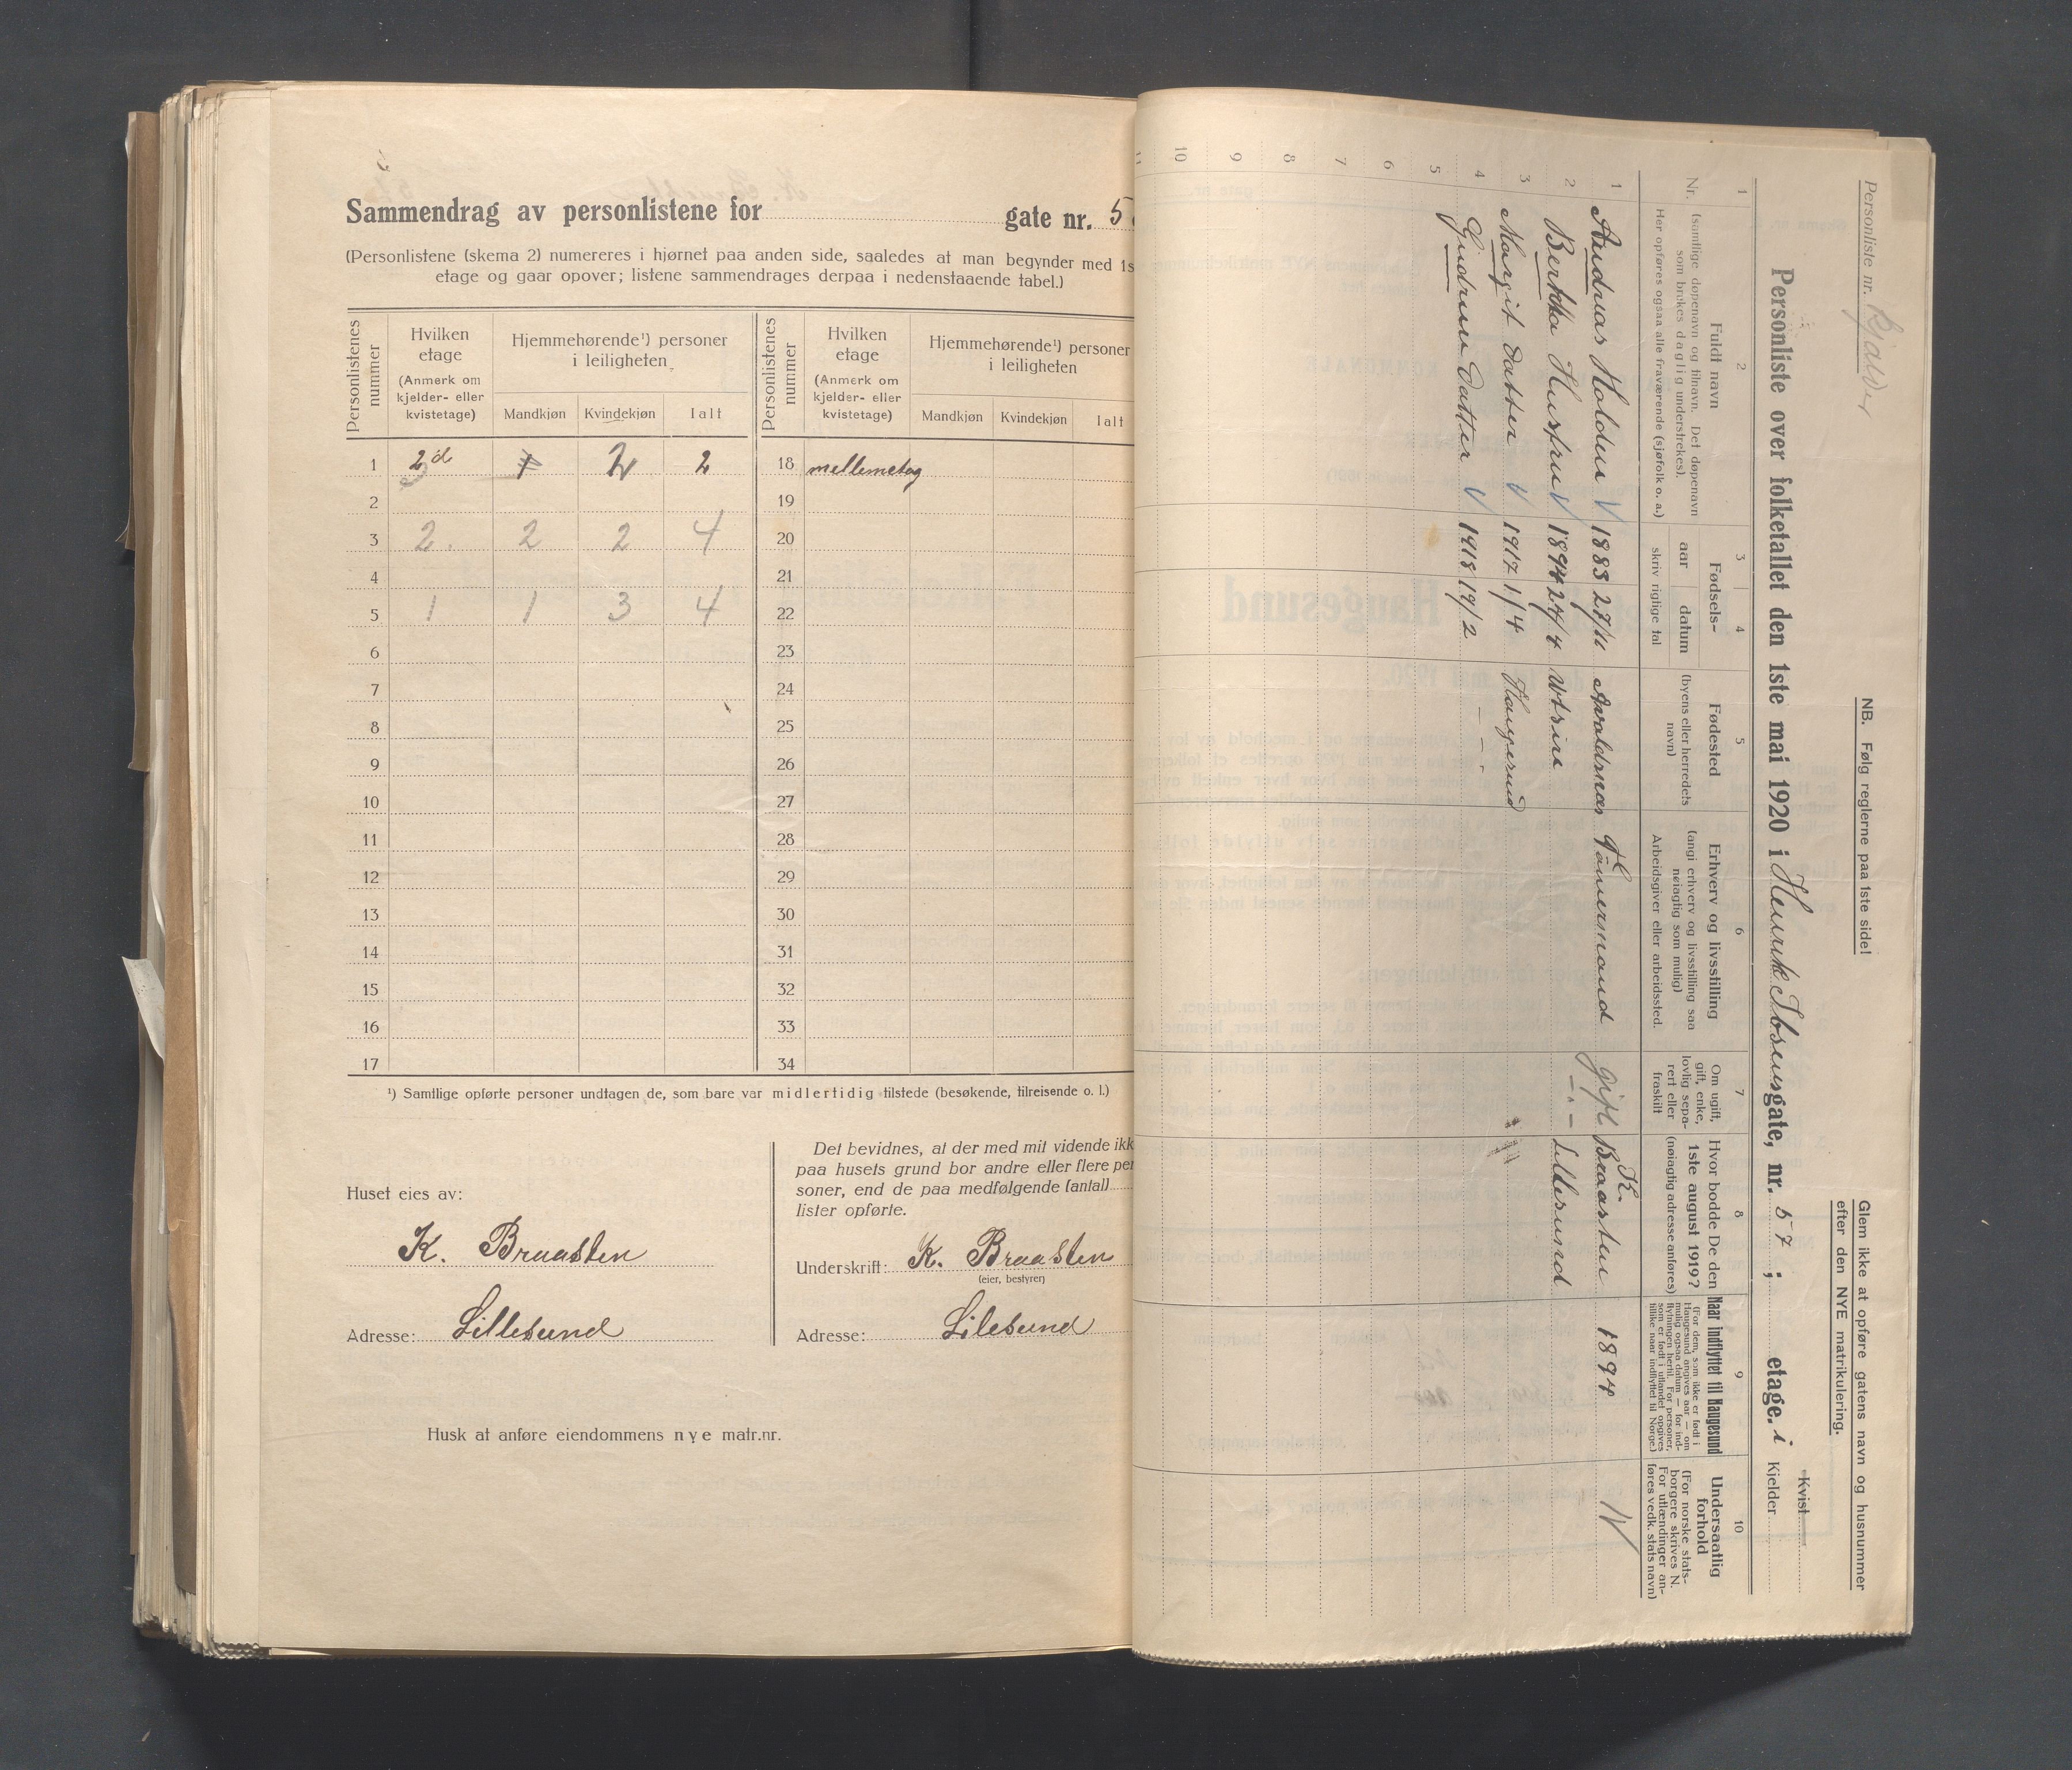 Sammendrag av personlistene for gate nr. 5
(Personlistene (skema 2) numereres i hjørnet paa anden side, saaledes at man begynder med 1s
etage og gaar opover; listene sammendrages derpaa i nedenstaaende tabel.)
Personlistenes nummer
Hvilken etage (Anmerk om kjelder- eller kvistetage)
Hjemmehørende¹) personer i leiligheten
Mandkjøn Kvindekjøn Ialt
Personlistenes nummer
Hvilken etage (Anmerk om kjelder- eller kvistetage)
Hjemmehørende¹) personer i leiligheten
Mandkjøn Kvindekjøn Ialt
1 2d 2 2 18 mellemetag
2 19
3 2. 2 2 4 20
4 21
5 1 1 3 4 22
6 23
7 24
8 25
9 26
10 27
11 28
12 29
13 30
14 31
15 32
16 33
17 34
¹) Samtlige opførte personer undtagen de, som bare var midlertidig tilstede (besøkende, tilreisende o. l.)
Huset eies av:
K. Braasten
Adresse: Lillesund
Det bevidnes, at der med mit vidende ikk
paa husets grund bor andre eller flere per
soner, end de paa medfølgende (antal)
lister opførte.
Underskrift: K. Braasten
(eier, bestyrer)
Adresse: Lilesund
Husk at anføre eiendommens nye matr.nr.
Personliste nr. Kjelder
NB. Følg reglerne paa 1ste side!
Glem ikke at opføre gatens navn og husnummer
efter den NYE matrikulering.
Personliste over folketallet den 1ste mai 1920 i Henrik Ibsensgate, nr. 57; etage. i Kvist Kjelder
1 2 3 4 5 6 7 8 9 10
Nr.
Fuldt navn
(samtlige døpenavn og tilnavn. Det døpenavn
som brukes daglig understrekes).
Her opføres ogsaa alle fraværende (sjøfolk o. a.)
Fødsels-
aar datum
skriv rigtige tal
Fødested
(byens eller herredets
navn)
Erhverv og livsstilling
(angi erhverv og livsstilling saa
nøiagtig som mulig)
Arbeidsgiver eller arbeidssted.
Om ugift,
gift, enke,
lovlig sepa-
rert eller
fraskilt
Hvor bodde De den
1ste august 1919?
(nøiagtig adresse anføres)
Naar indflyttet til Haugesund
(For dem, som ikke er født i
Haugesund angives aar — om
mulig ogsaa datum — for ind-
flytningen hertil. For personer,
som er født i utlandet opgives
tillike naar indflyttet til Norge.)
Undersaatlig
forhold
(For norske stats-
borgere skrives N.
For utlændinger an-
føres vedk. stats navn)
1 Andreas Holden 1883 27/11 Avaldsnes Tømermand gift K. Braasten 1894 N
2 Bertha Hustru 1894 24/4 Utsire - " - Lillesund
3 Margit datter 1917 1/4 Haugesund
4 Gudrun datter 1918 19/2 - " -
5
6
7
8
9
10
11